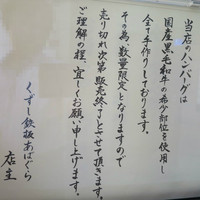 当店のハンバーグは
国産黒毛和牛の希少部位を使用し
全て手作りしております。
その為、数量限定となりますので
売り切れ次第販売終了とさせて頂きます。
ご理解の程、宜しくお願い申し上げます。
くずし鉄板あばぐら
店主